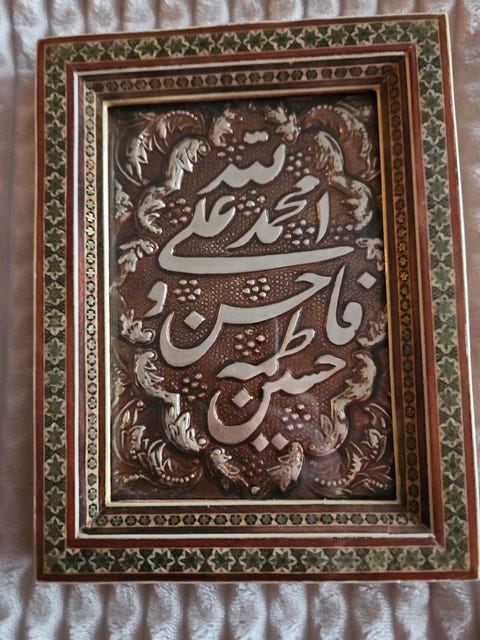 الله
محمد علی
فاطمه حسن و
حسین